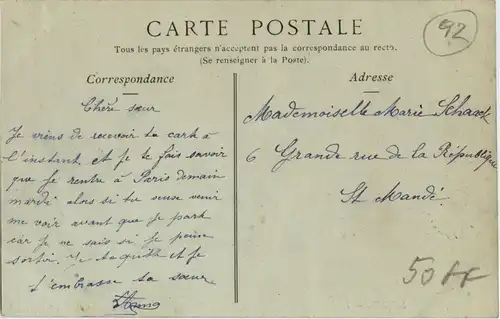 CARTE POSTALE
92
Tous les pays étrangers n'acceptent pas la correspondance au recto.
(Se renseigner à la Poste).
Correspondance
Chère sœur
Je viens de recevoir ta carte à
l'instant et je te fais savoir
que je rentre à Paris demain
mardi alors si tu veux venir
me voir avant que je parte
car je ne sais si je peux
sortir. Je te quitte et je
t'embrasse ta sœur
Adresse
Mademoiselle Marie Schaack
6 Grande rue de la République
St Mandé
50